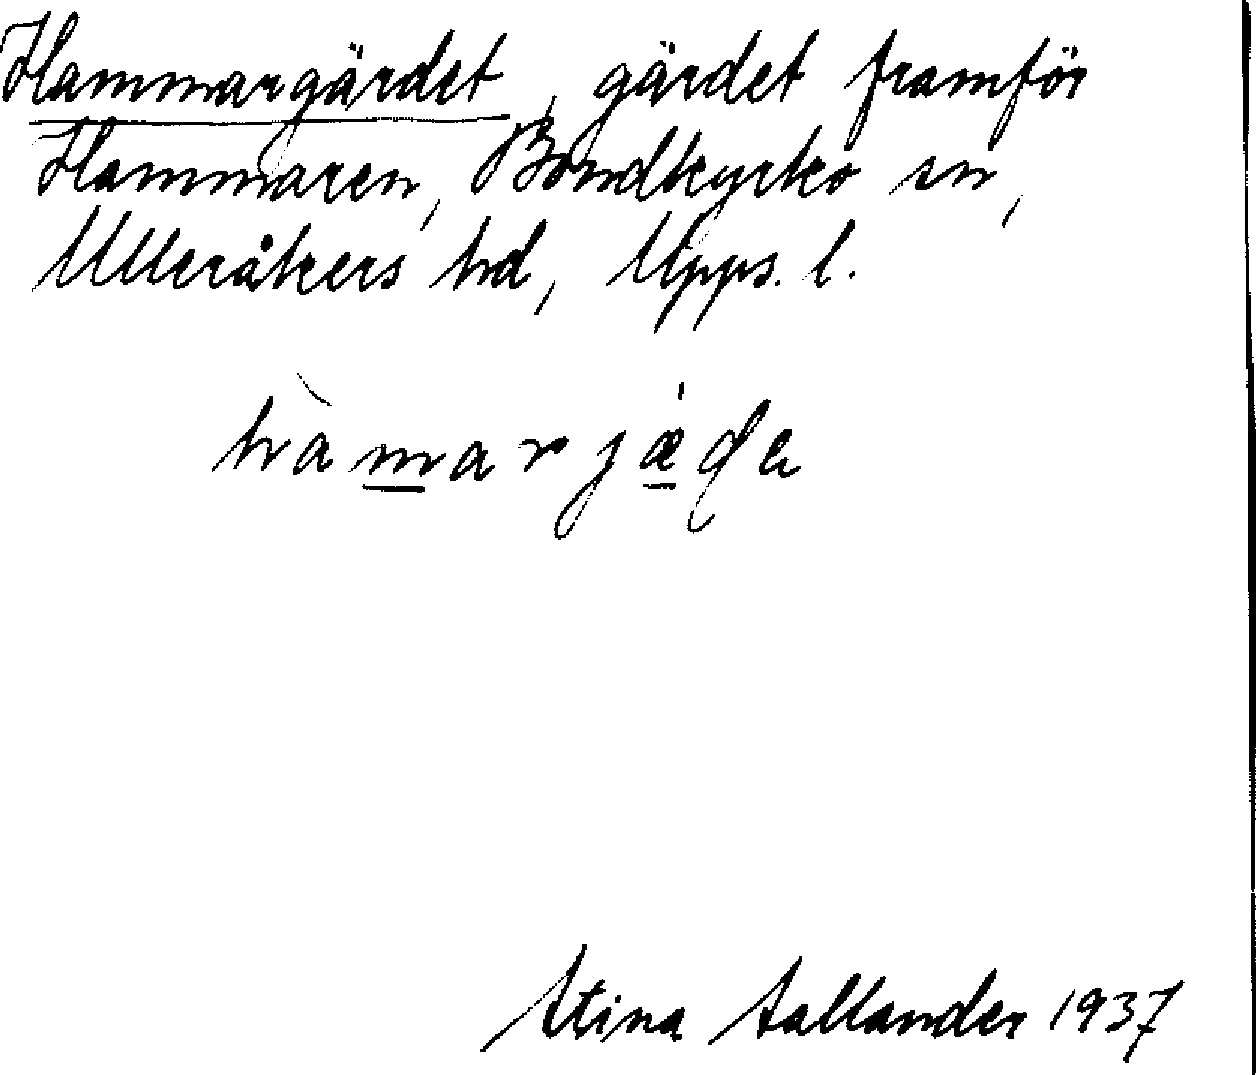 Hammargärdet, gärdet framför
Hammaren, Bondkyrko sn,
Ulleråkers hd, Upps. l.
hàmarjæ̀de
Stina Sallander 1937